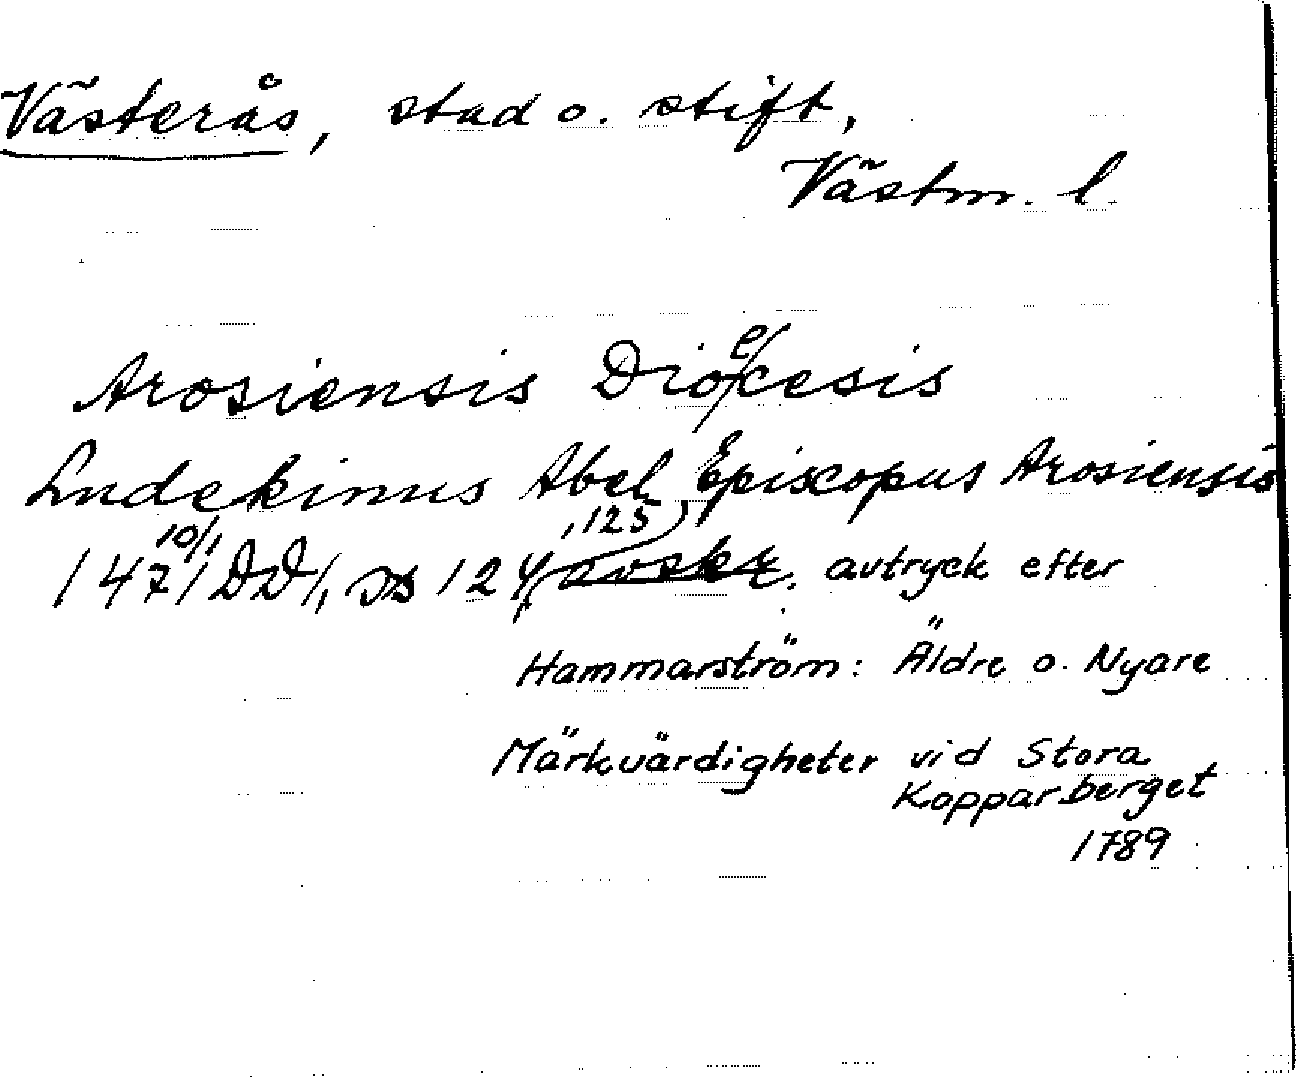 Västerås, stad o. stift,
Västm. l.
Arosiensis Diecesis
Ludekinus Abel Episcopus Arosiensis
1471 10/1 DD 1, s 124, 125 avskr. avtryck efter
Hammarström: Äldre o. Nyare
Märkvärdigheter vid Stora
Kopparberget
1789